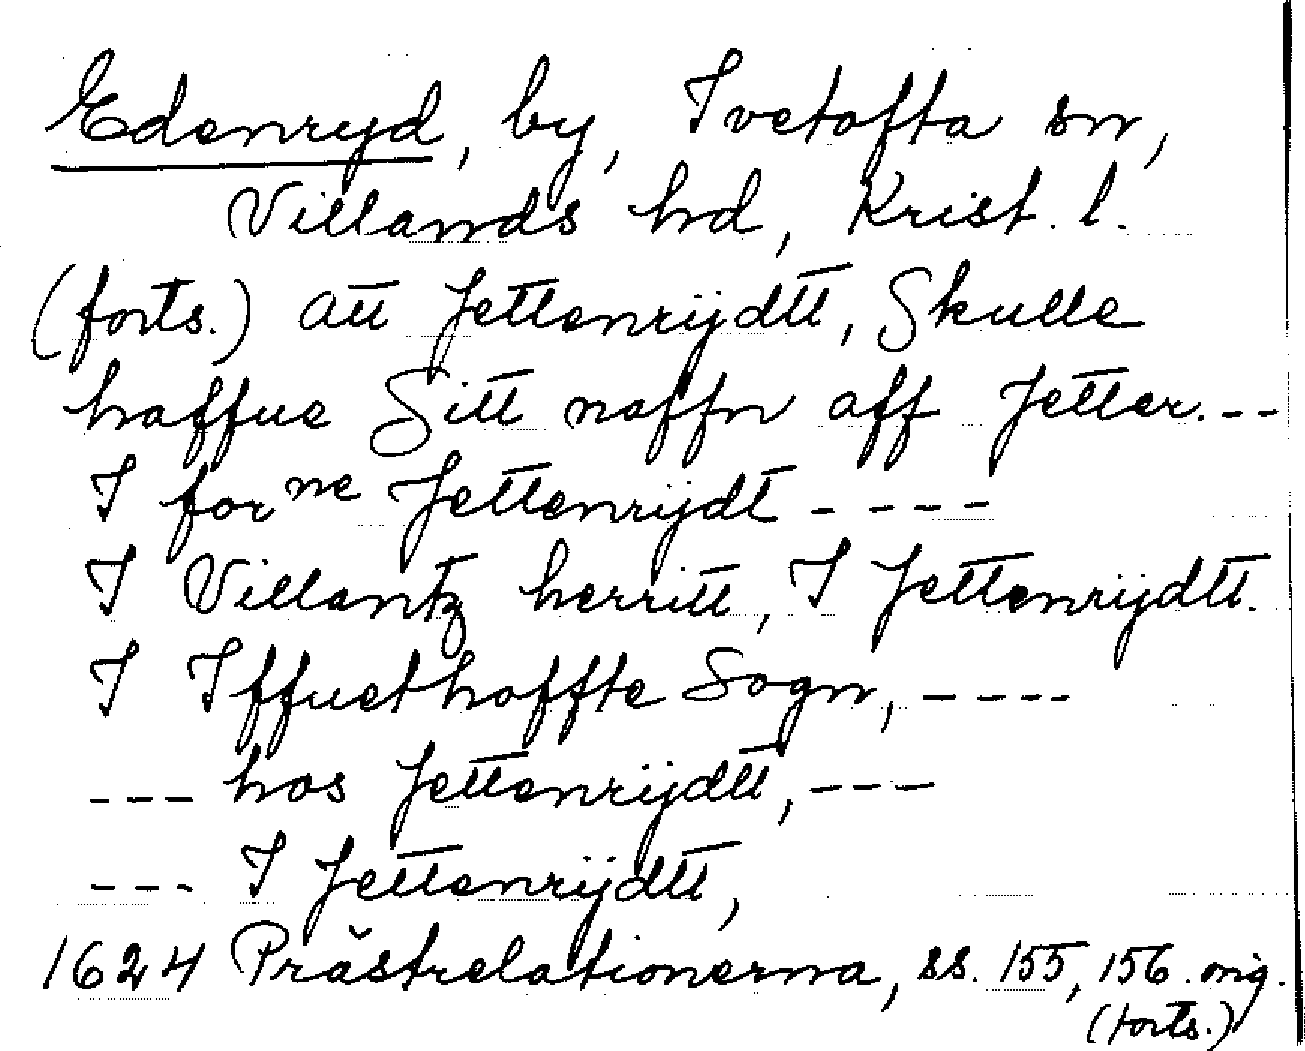 Edenryd, by, Ivetofta sn,
Villands hd, Krist. l.
(forts.) att Jettenrijdtt, Skulle
haffue Sitt naffn aff Jetter.--
I for ne Jettenrijdt ----
I Villantz herritt, I Jettenrijdtt.
I Iffuethoffte Sogn, ----
--- hos Jettenrijdtt, ---
--- I Jettenrijdtt,
1624 Prästrelationerna, ss. 155, 156. orig.
(forts.)